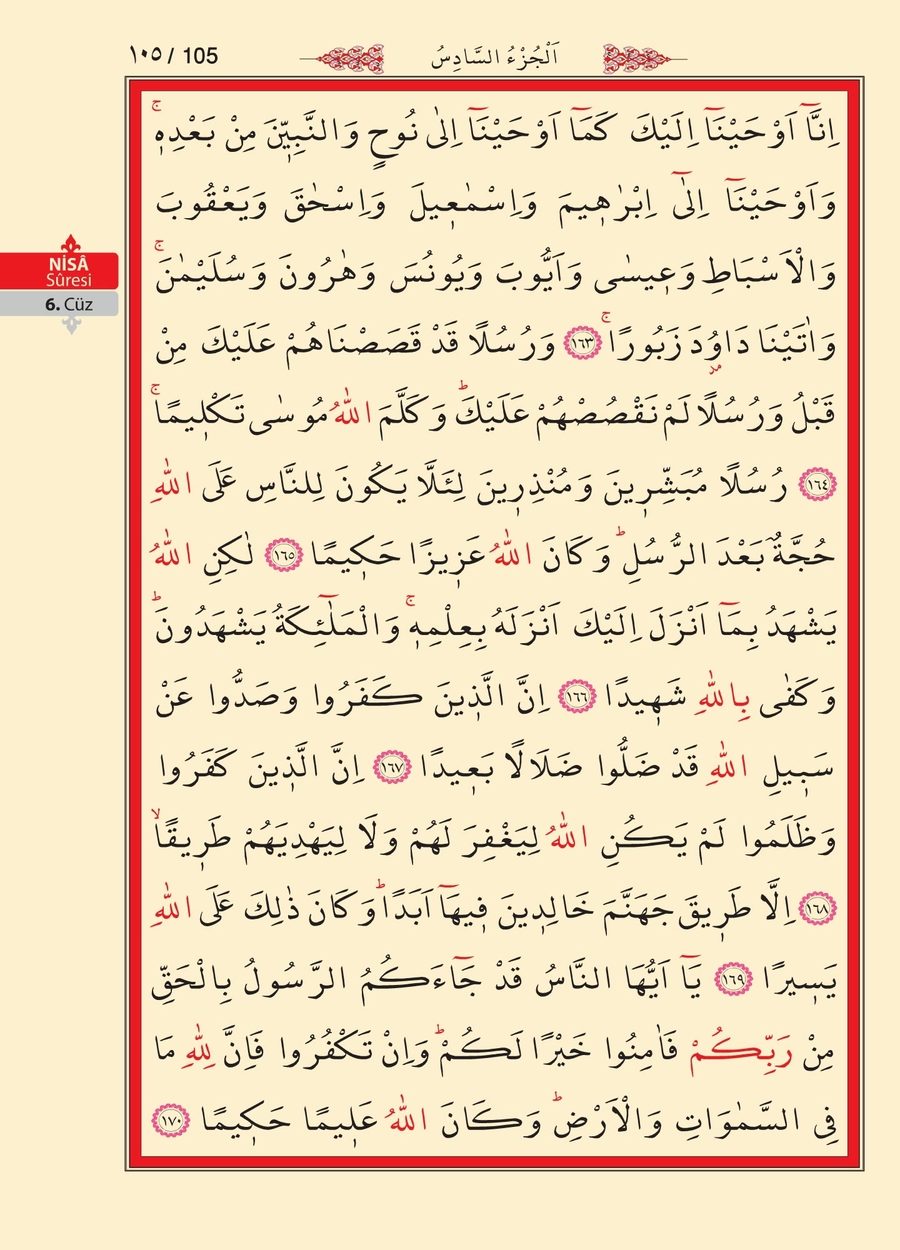 ١٠٥ / 105
اَلْجُزْءُ السَّادِسُ
NİSÂ
Sûresi
6. Cüz
اِنَّٓا اَوْحَيْنَٓا اِلَيْكَ كَمَٓا اَوْحَيْنَٓا اِلٰى نُوحٍ وَالنَّبِيّ۪نَ مِنْ بَعْدِه۪ۚ
وَاَوْحَيْنَٓا اِلٰٓى اِبْرٰه۪يمَ وَاِسْمٰع۪يلَ وَاِسْحٰقَ وَيَعْقُوبَ
وَالْاَسْبَاطِ وَع۪يسٰى وَاَيُّوبَ وَيُونُسَ وَهٰرُونَ وَسُلَيْمٰنَۚ
وَاٰتَيْنَا دَاوُ۫دَ زَبُورًاۚ ﴿١٦٣﴾ وَرُسُلًا قَدْ قَصَصْنَاهُمْ عَلَيْكَ مِنْ
قَبْلُ وَرُسُلًا لَمْ نَقْصُصْهُمْ عَلَيْكَۜ وَكَلَّمَ اللّٰهُ مُوسٰى تَكْل۪يمًاۚ
﴿١٦٤﴾ رُسُلًا مُبَشِّر۪ينَ وَمُنْذِر۪ينَ لِئَلَّا يَكُونَ لِلنَّاسِ عَلَى اللّٰهِ
حُجَّةٌ بَعْدَ الرُّسُلِۜ وَكَانَ اللّٰهُ عَز۪يزًا حَك۪يمًا ﴿١٦٥﴾ لٰكِنِ اللّٰهُ
يَشْهَدُ بِمَٓا اَنْزَلَ اِلَيْكَ اَنْزَلَهُ بِعِلْمِه۪ۚ وَالْمَلٰٓئِكَةُ يَشْهَدُونَۜ
وَكَفٰى بِاللّٰهِ شَه۪يدًا ﴿١٦٦﴾ اِنَّ الَّذ۪ينَ كَفَرُوا وَصَدُّوا عَنْ
سَب۪يلِ اللّٰهِ قَدْ ضَلُّوا ضَلَالًا بَع۪يدًا ﴿١٦٧﴾ اِنَّ الَّذ۪ينَ كَفَرُوا
وَظَلَمُوا لَمْ يَكُنِ اللّٰهُ لِيَغْفِرَ لَهُمْ وَلَا لِيَهْدِيَهُمْ طَر۪يقًاۙ
﴿١٦٨﴾ اِلَّا طَر۪يقَ جَهَنَّمَ خَالِد۪ينَ ف۪يهَٓا اَبَدًاۜ وَكَانَ ذٰلِكَ عَلَى اللّٰهِ
يَس۪يرًا ﴿١٦٩﴾ يَٓا اَيُّهَا النَّاسُ قَدْ جَٓاءَكُمُ الرَّسُولُ بِالْحَقِّ
مِنْ رَبِّكُمْ فَاٰمِنُوا خَيْرًا لَكُمْۜ وَاِنْ تَكْفُرُوا فَاِنَّ لِلّٰهِ مَا
فِى السَّمٰوَاتِ وَالْاَرْضِۜ وَكَانَ اللّٰهُ عَل۪يمًا حَك۪يمًا ﴿١٧٠﴾